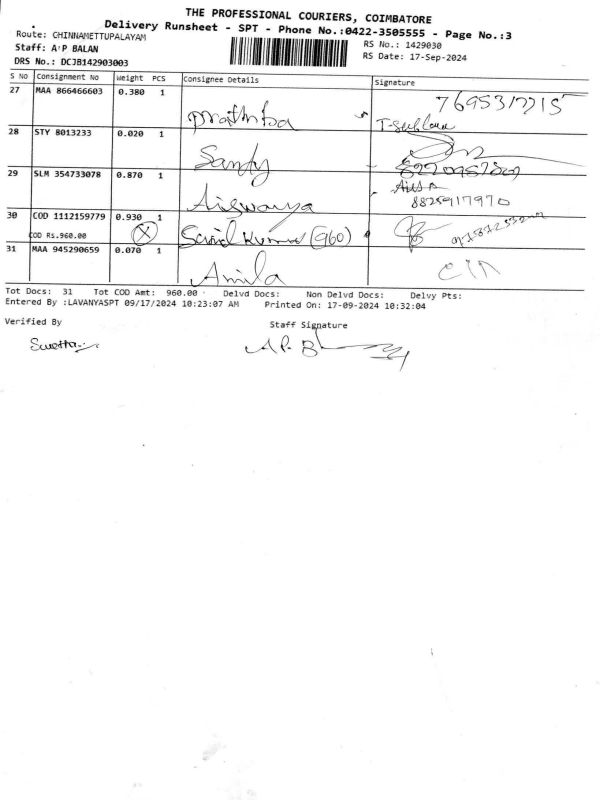 THE PROFESSIONAL COURIERS, COIMBATORE
Delivery Runsheet - SPT - Phone No.:0422-3505555 - Page No.:3
Route: CHINNAMETTUPALAYAM
Staff: A P BALAN
DRS No.: DCJB142903003
RS No.: 1429030
RS Date: 17-Sep-2024
S No Consignment No Weight PCS Consignee Details Signature
27 MAA 866466603 0.380 1 Prathiba 7695317715
28 STY 8013233 0.020 1 Sandy
29 SLM 354733078 0.870 1 Aiswarya 8825917970
30 COD 1112159779 0.930 1 (960)
COD Rs.960.00 X
31 MAA 945290659 0.070 1 Amila
Tot Docs: 31 Tot COD Amt: 960.00 Delvd Docs: Non Delvd Docs: Delvy Pts:
Entered By :LAVANYASPT 09/17/2024 10:23:07 AM Printed On: 17-09-2024 10:32:04
Verified By Staff Signature
Swetha
A P. B